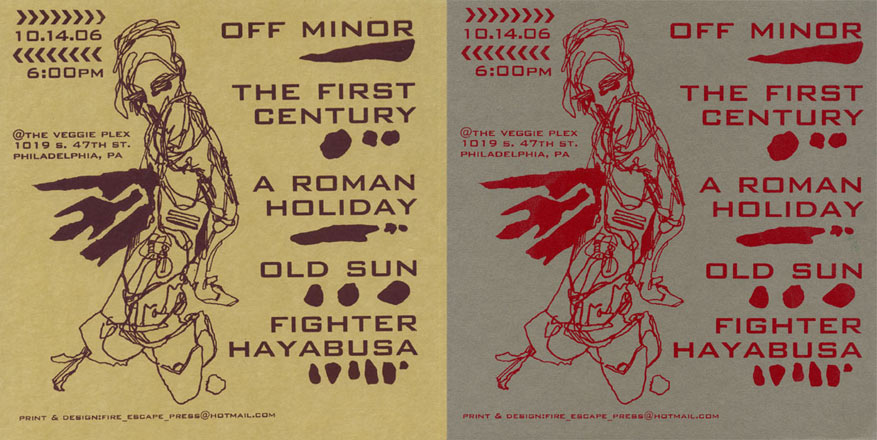 10.14.06
6:00PM
@THE VEGGIE PLEX
1019 S. 47TH ST.
PHILADELPHIA, PA
OFF MINOR
THE FIRST
CENTURY
A ROMAN
HOLIDAY
OLD SUN
FIGHTER
HAYABUSA
PRINT & DESIGN:FIRE_ESCAPE_PRESS@HOTMAIL.COM
10.14.06
6:00PM
@THE VEGGIE PLEX
1019 S. 47TH ST.
PHILADELPHIA, PA
OFF MINOR
THE FIRST
CENTURY
A ROMAN
HOLIDAY
OLD SUN
FIGHTER
HAYABUSA
PRINT & DESIGN:FIRE_ESCAPE_PRESS@HOTMAIL.COM